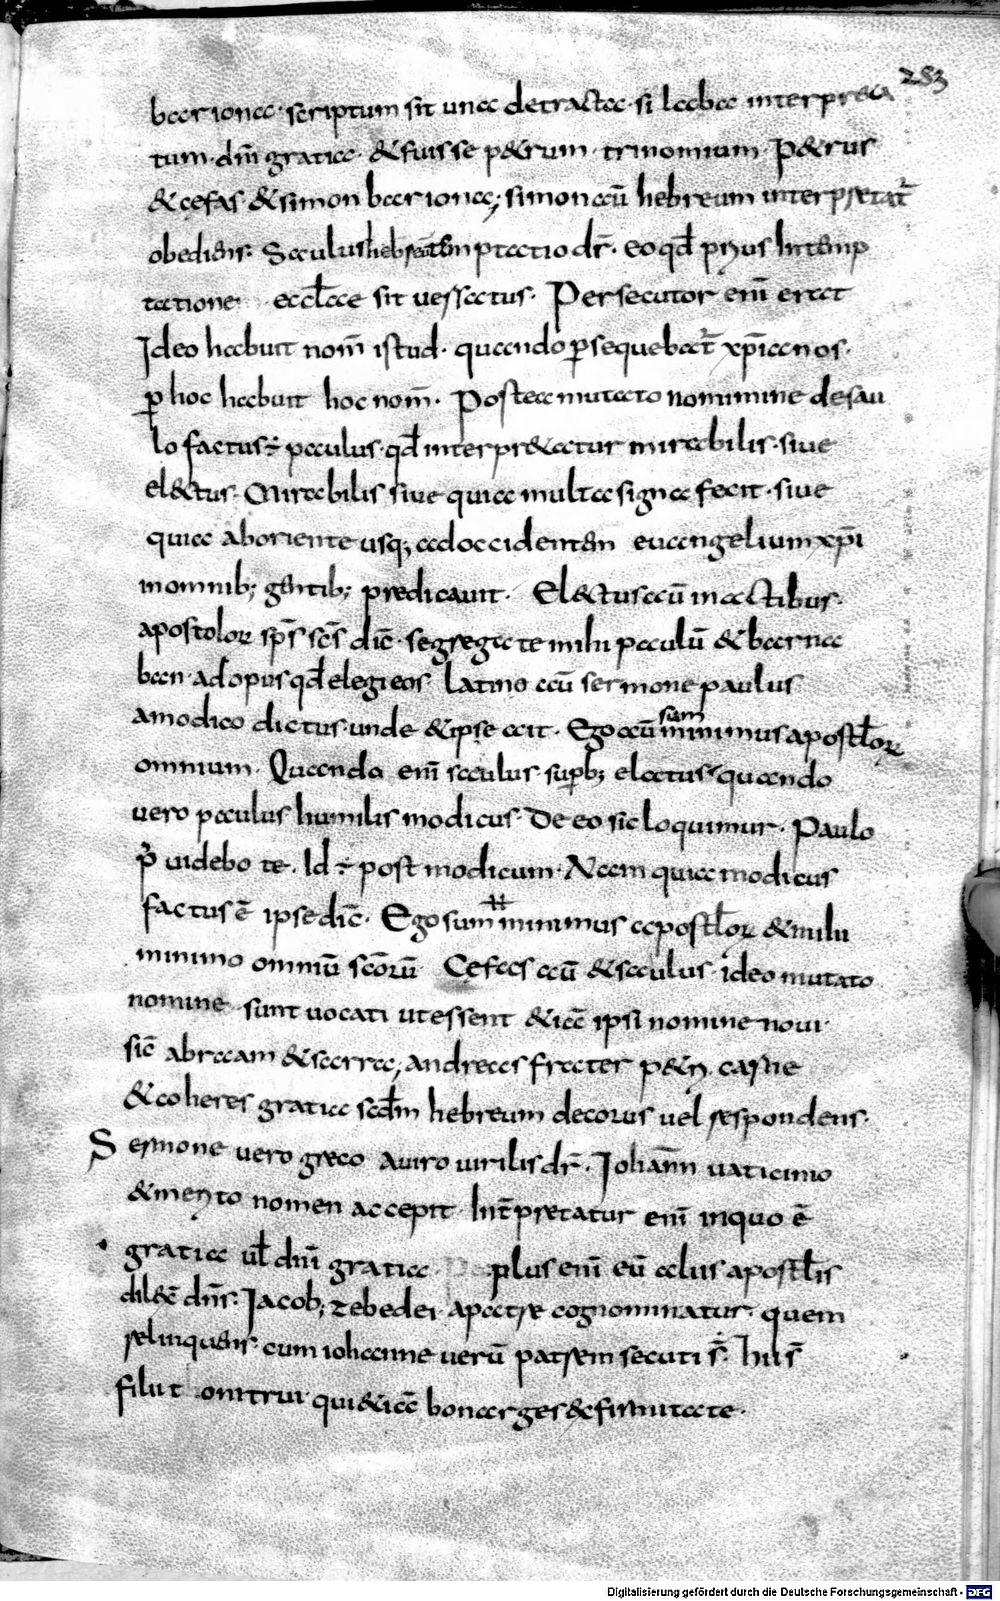 283
barionaa· scriptum sit una detracta· si laaba interpreta
tum· dñi gratia· &fuisse p&rum· trinomium· P&rus
&cefas &simon bariona; simon aū hebreum interpretat̄
obediens· Saulus hebraice temptatio dr̄· eo qđ prius In temp
tatione eccl̄ae sit uersatus· Persecutor enī erat
Ideo habuit nom̄ istud· quando ꝑsequebat̄ xp̄ianos·
ꝑ hoc habuit hoc nom̄· Postea mutato nomimine de sau
lo factus ÷ paulus· qđ interpr&atur mirabilis· siue
el&tus· Mirabilis siue quia multa signa fecit· siue
quia ab oriente usq; ad occidentem euangelium xp̄i
in omnib; gentib; predicauit· El&tus aū in actibus·
apostoloꝝ sp̄s sc̄s dic̄· segregate mihi paulū & barna
ban· ad opus qđ elegi eos· Latino aū sermone paulus
a modico dictus· unde &ipse ait· Ego aū sum minimus apostl̄oꝝ
omnium· Quando enī saulus· suꝑb; elatus· quando
uero paulus humilis modicus· De eo sic loquimur· Paulo
p̄ uidebo te· Id ÷ post modicum· Nam quia modicus
factus ē ipse dic̄· Ego sum minimus apostl̄oꝝ &mihi
minimo omniū sc̄orū Cefas aū &saulus· ideo mutato
nomine sunt uocati ut essent &iā ipsi nomine noui·
sic̄ abraam &sarra; andreas frater p&ri carne
&coheres gratiae scđm hebreum decorus uel respondens·
Sermone uero greco a uiro uirilis dr̄· Johann̄ uaticinio
&merito nomen accepit· Int̄pretatur enī in quo ē
gratia ul̄ dñi gratia plus enī eū alus apostl̄is
dil&̄ dn̄s· Jacob; zebedei a patre cognominatur· quem
relinquens· cum iohanne uerū patrem secuti s̄·
filii tonitrui· qui &iā boanerges &firmitate·
Digitalisierung gefördert durch die Deutsche Forschungsgemeinschaft - DFG